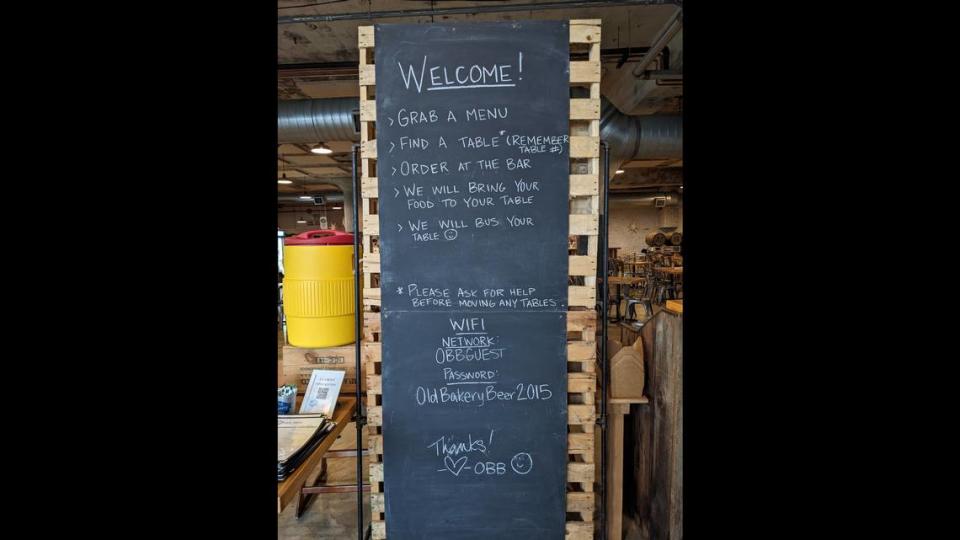 WELCOME!
> GRAB A MENU
> FIND A TABLE* (REMEMBER
TABLE #)
> ORDER AT THE BAR
> WE WILL BRING YOUR
FOOD TO YOUR TABLE
> WE WILL BUS YOUR
TABLE ☺
* PLEASE ASK FOR HELP
BEFORE MOVING ANY TABLES.
WIFI
NETWORK:
OBBGUEST
PASSWORD:
OldBakeryBeer2015
Thanks!
-♡- OBB ☺